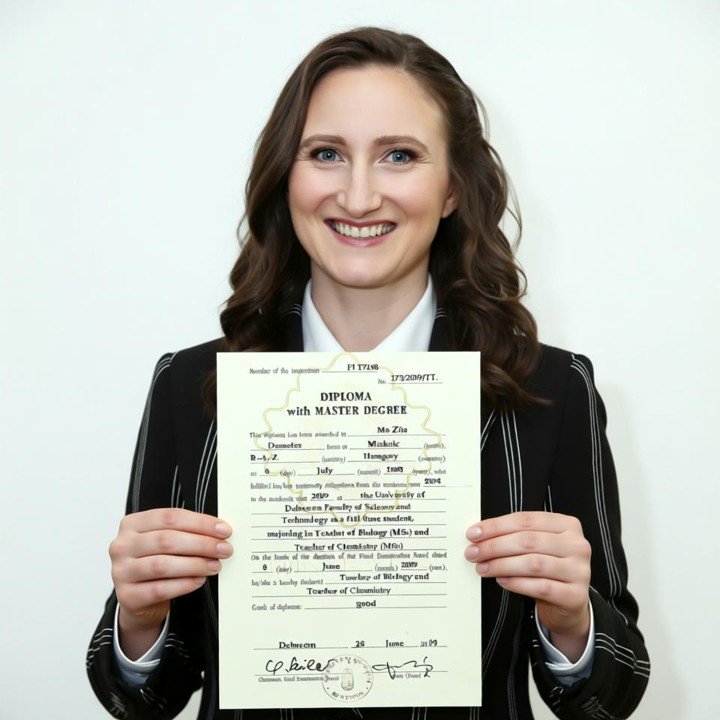 Number of the institution: FI 17198
No 173/2009/TT.
DIPLOMA
with MASTER DEGREE
This diploma has been awarded to Ms Zita
Demeter born in Miskolc
B.-A.-Z. (county) Hungary (country)
(day) July (month)
to the academic year 2009 at the University of
Debrecen Faculty of Science and
Technology as a full time student,
majoring in Teacher of Biology (MSc) and
Teacher of Chemistry (MSc)
On the basis of the decision of the Final Examination Board dated
(day) June (month) (year),
he/she is hereby declared Teacher of Biology and
Teacher of Chemistry
Grade of diploma: good
Debrecen 20 June
Chairman, Final Examination Board